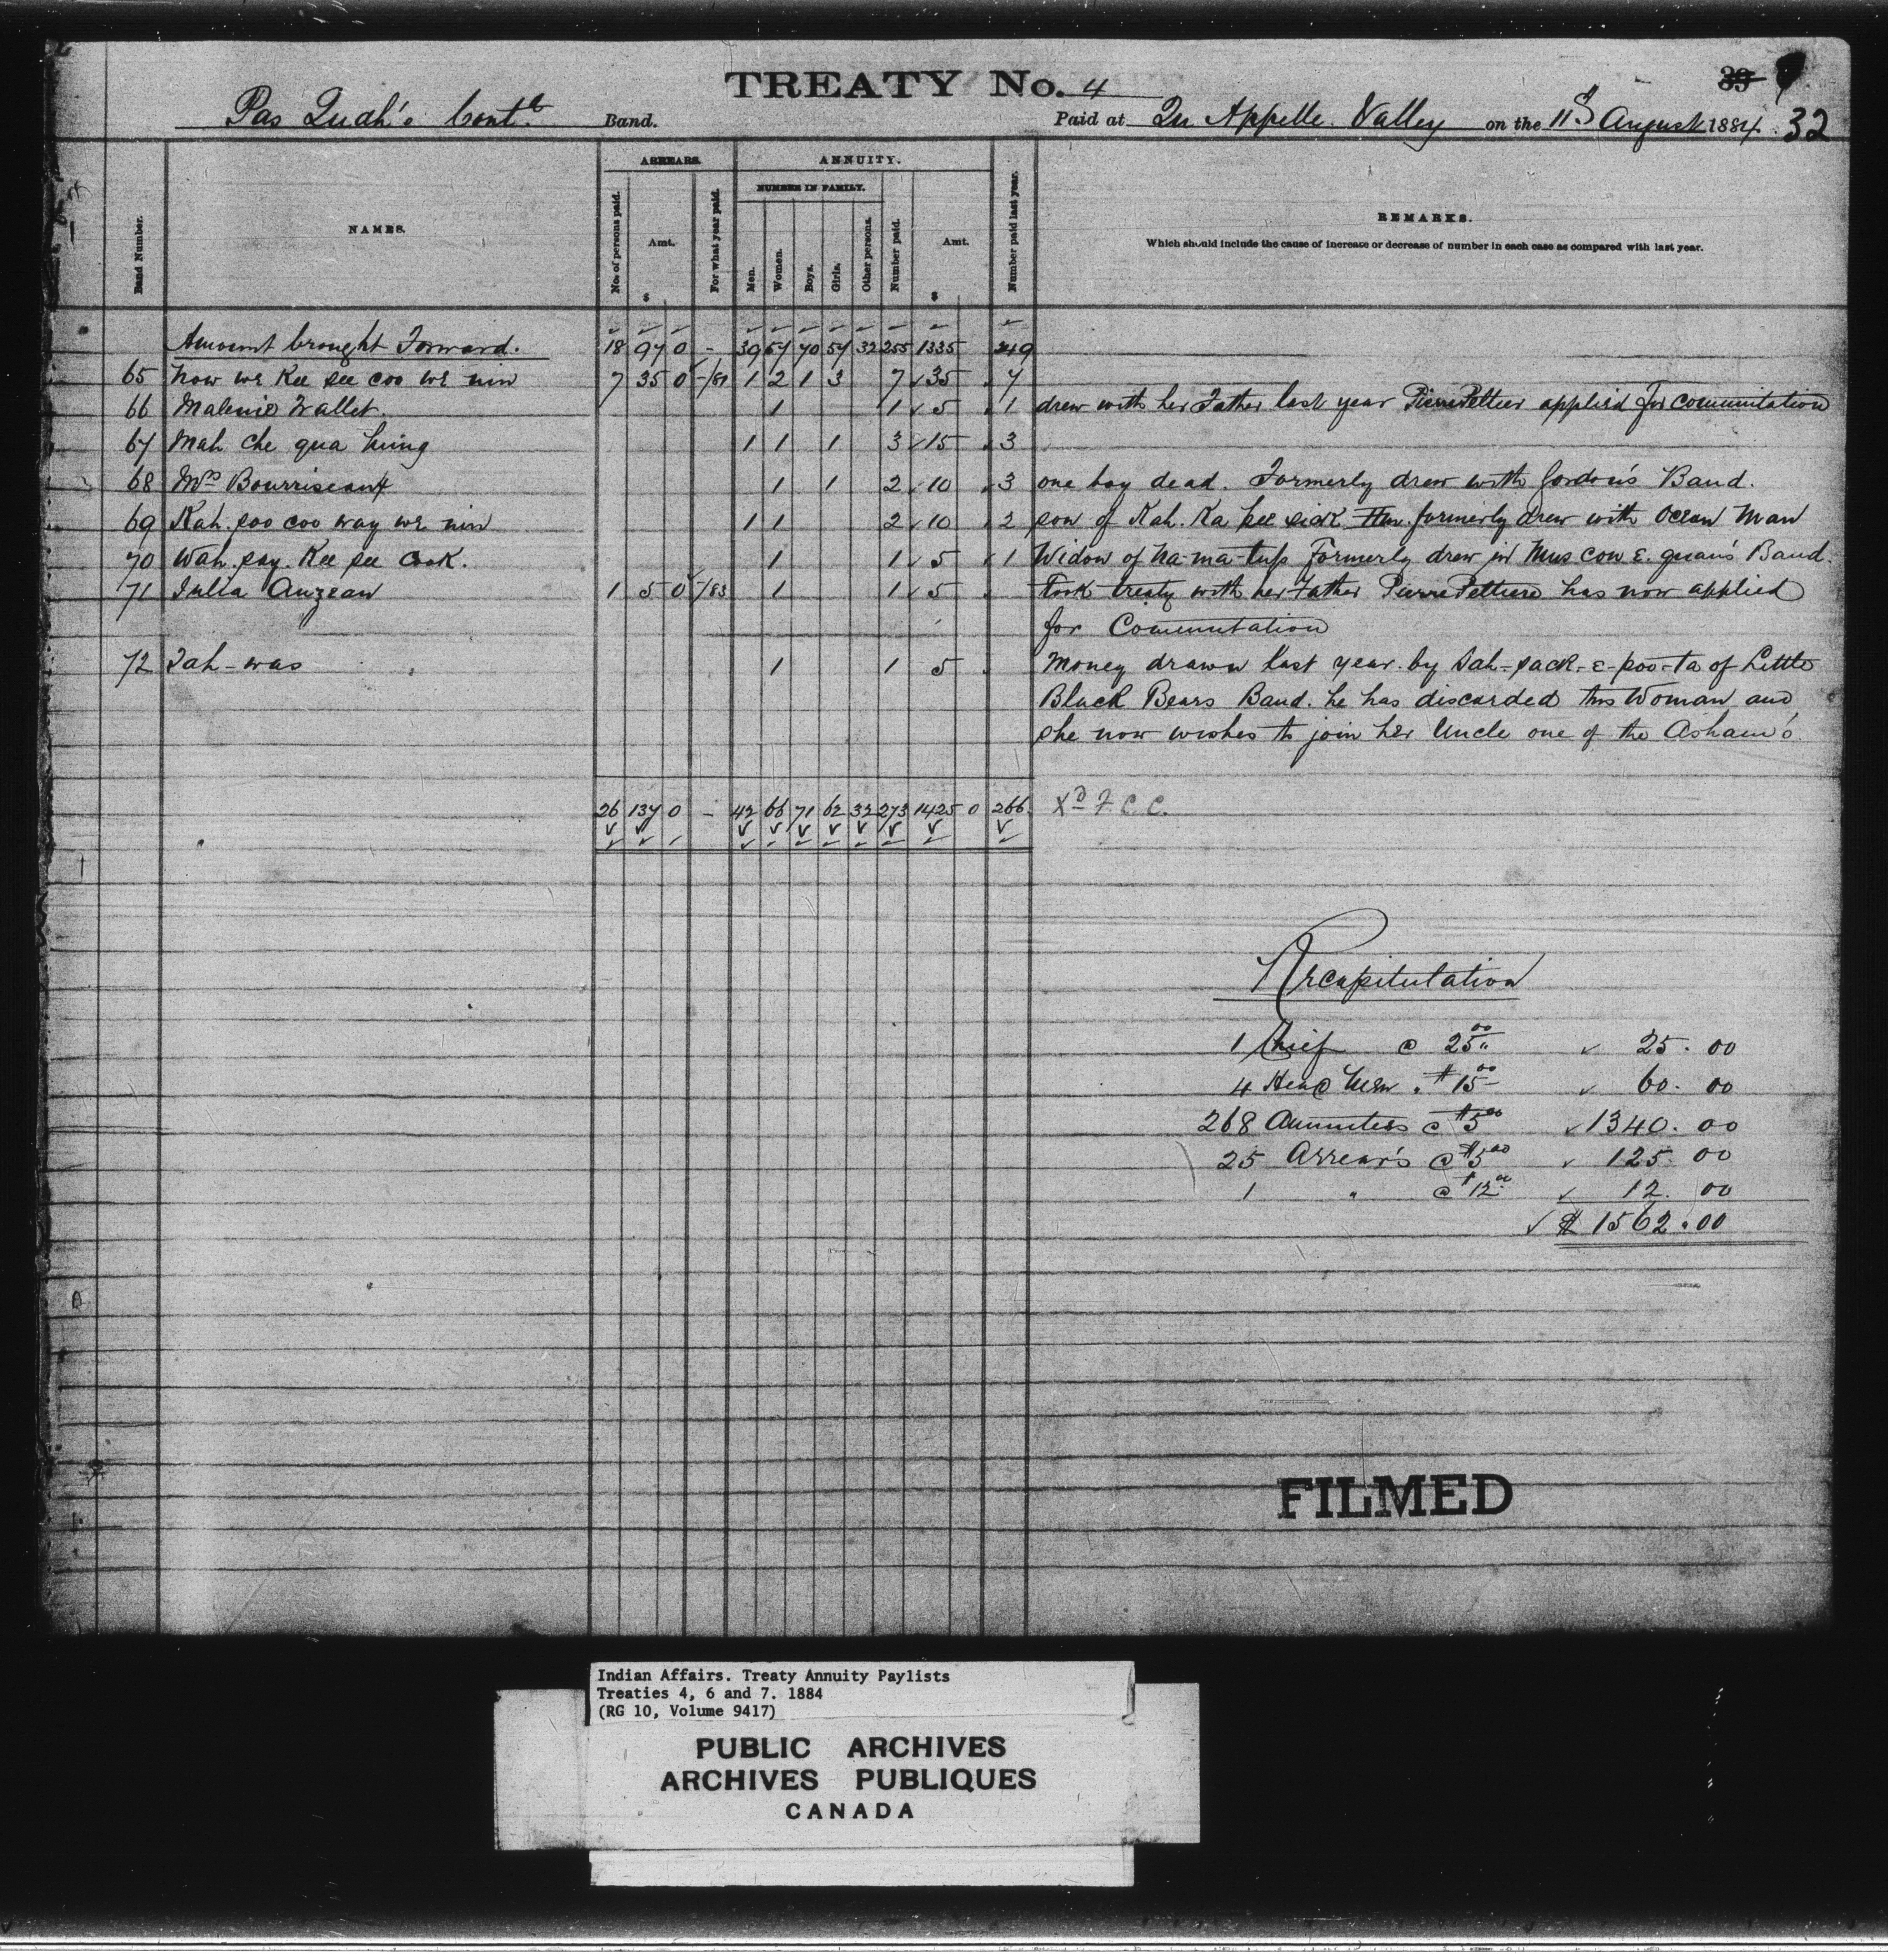 TREATY No. 4
33
Pas Quah's Cont'd Band.
Paid at Qu'Appelle Valley on the 11th August 1884. 32
Band Number.
NAMES.
ARREARS.
No. of persons paid.
Amt.
$
For what year paid.
ANNUITY.
NUMBER IN FAMILY.
Men.
Women.
Boys.
Girls.
Other persons.
Number paid.
Amt.
$
Number paid last year.
REMARKS.
Which should include the cause of increase or decrease of number in each case as compared with last year.
Amount brought Forward. 18 97 0 - 39 57 70 57 32 255 1335 249
65 now we Kee see coo we nin 7 35 0 -/81 1 2 1 3 7 35 7
66 Malenie Wallet. 1 1 5 1 drew with her Father last year Pierre Peltier applied for commutation
67 Mah che qua king 1 1 1 3 15 3
68 Mrs Bourriseau 1 1 2 10 3 one boy dead. Formerly drew with Gordon's Band.
69 Kah. soo coo way we nin 1 1 2 10 2 son of Kah. Ka kee sick formerly drew with Ocean Man
70 Wah. say. Kee see Cook. 1 1 5 1 Widow of na-ma-tup Formerly drew in Mus cow e. quan's Band.
71 Julia Auzeau 1 5 0 /83 1 1 5 Took treaty with her Father Pierre Peltier has now applied
for Commutation
72 Tah-was 1 1 5 Money drawn last year by Sah-sack-e-poo-ta of Little
Black Bears Band. he has discarded this Woman and
she now wishes to join her Uncle one of the Asham's.
26 137 0 - 42 66 71 62 32 273 1425 0 266 Xd F.C.C.
Recapitulation
1 Chief @ 25.00 25.00
4 Head Men " $15.00 60.00
268 Annuities @ $5.00 1340.00
25 Arrear's @ $5.00 125.00
1 " @ $12.00 12.00
$1562.00
FILMED
Indian Affairs. Treaty Annuity Paylists
Treaties 4, 6 and 7. 1884
(RG 10, Volume 9417)
PUBLIC ARCHIVES
ARCHIVES PUBLIQUES
CANADA